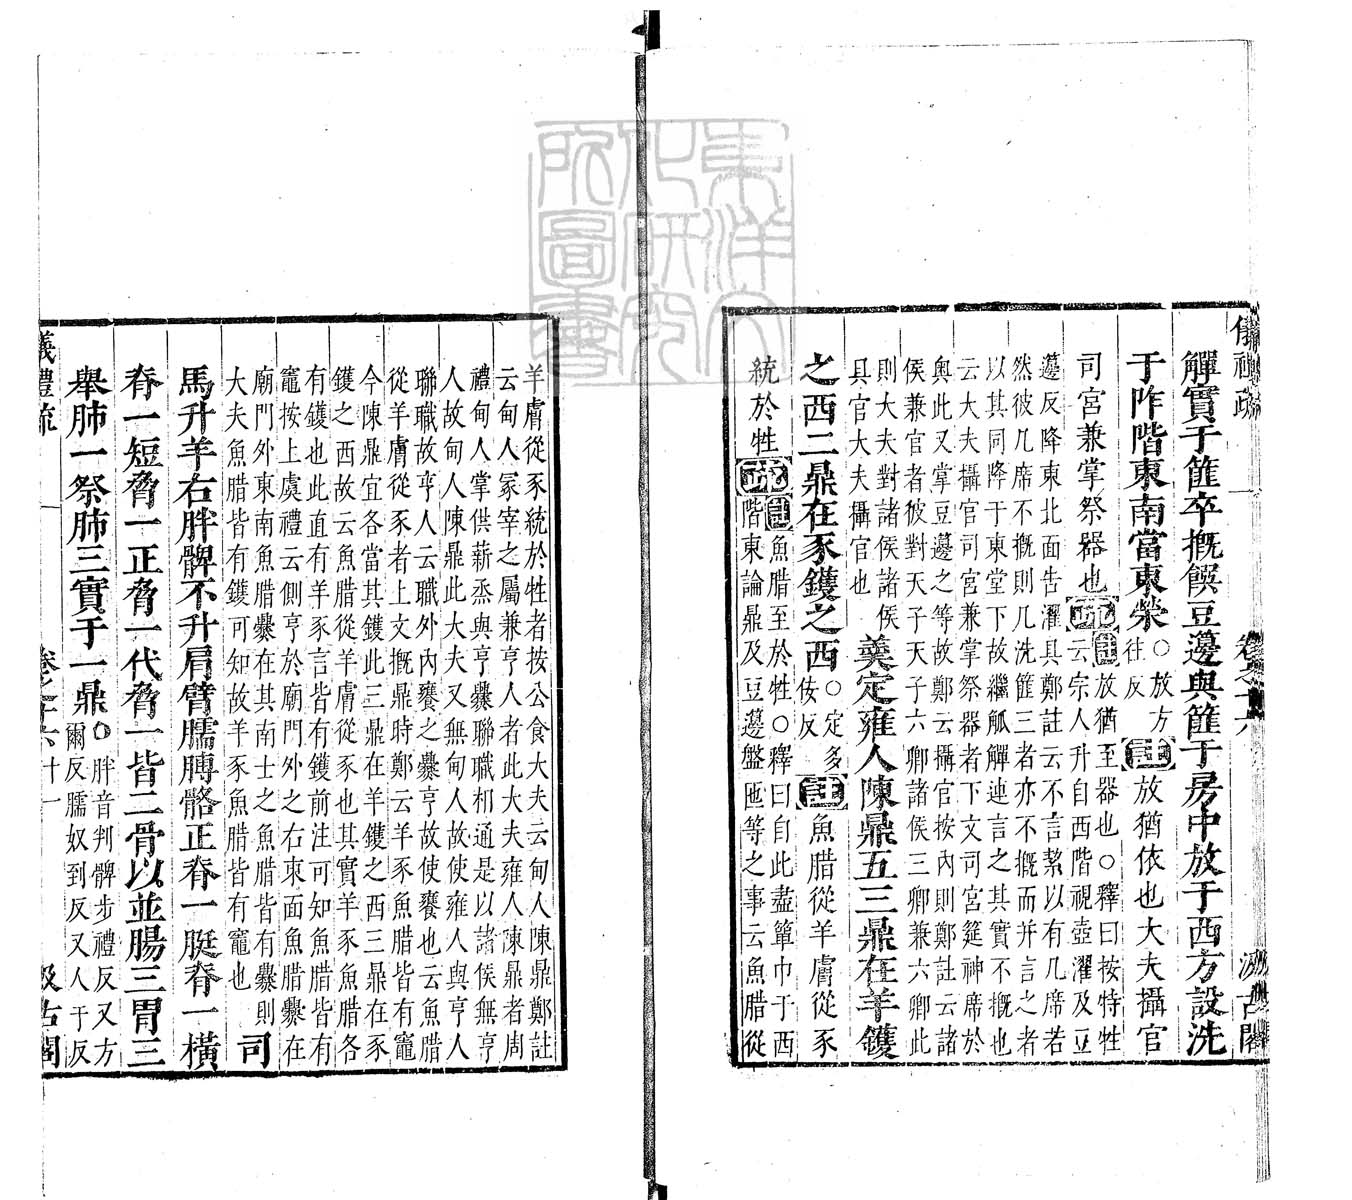 儀禮疏　卷之十六　汲古閣
觶實于篚卒摡饌豆籩與篚于房中放于西方設洗
于阼階東南當東榮○放方往反註放猶依也大夫攝官
司宮兼掌祭器也疏註放猶至器也○釋曰按特牲
云宗人升自西階視壺濯及豆
籩反降東北面告濯具鄭註云不言絜以有几席若
然彼几席不摡則几洗篚三者亦不摡而并言之者
以其同降于東堂下故繼觚觶連言之其實不摡也
云大夫攝官司宮兼掌祭器者下文司宮筵神席於
奧此又掌豆籩之等故鄭云攝官按內則鄭註云諸
侯兼官者彼對天子天子六卿諸侯三卿兼六卿此
則大夫對諸侯諸侯
具官大夫攝官也
羹定雍人陳鼎五三鼎在羊鑊
之西二鼎在豕鑊之西○定多佞反註魚腊從羊膚從豕
統於牲疏註魚腊至於牲○釋曰自此盡簞巾于西
階東論鼎及豆籩盤匜等之事云魚腊從
羊膚從豕統於牲者按公食大夫云甸人陳鼎鄭註
云甸人冢宰之屬兼亨人者此大夫雍人陳鼎者周
禮甸人掌供薪烝與亨爨聯職相通是以諸侯無亨
人故甸人陳鼎此大夫又無甸人故使雍人與亨人
聯職故亨人云職外內饔之爨亨故使饔也云魚腊
從羊膚從豕者上文摡鼎時鄭云羊豕魚腊皆有竈
今陳鼎宜各當其鑊此三鼎在羊鑊之西三鼎在豕
鑊之西故云魚腊從羊膚從豕也其實羊豕魚腊各
有鑊也此直有羊豕言皆有鑊前注可知魚腊皆有
竈按上虞禮云側亨於廟門外之右東面魚腊爨在
廟門外東南魚腊爨在其南士之魚腊皆有爨則
大夫魚腊皆有鑊可知故羊豕魚腊皆有竈也
司
馬升羊右胖髀不升肩臂臑膊骼正脊一脡脊一橫
脊一短脅一正脅一代脅一皆二骨以並腸三胃三
舉肺一祭肺三實于一鼎○胖音判髀步禮反又方
爾反臑奴到反又人于反
儀禮疏　卷之十六　十一　汲古閣
東洋文化研究所圖書